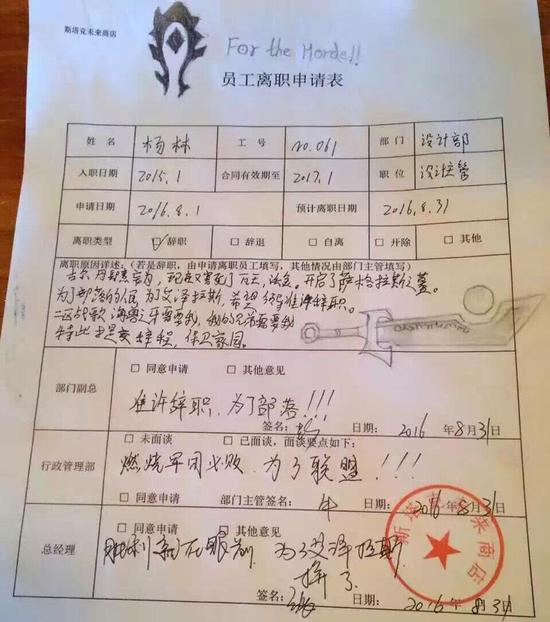 斯塔克未来商店
For the Horde!!
员工离职申请表
姓名 杨林 工号 no.061 部门 设计部
入职日期 2015.1 合同有效期至 2017.1 职位
申请日期 2016.8.1 预计离职日期 2016.8.31
离职类型 ☑辞职 □辞退 □自离 □开除 □其他
离职原因详述:(若是辞职,由申请离职员工填写,其他情况由部门主管填写)
古尔丹 现在又害死了 开启了萨格拉斯之墓。
为了部落的 为了艾泽拉斯,希望 准许辞职。
二区战歌 海 需要我,我的兄弟需要我
特此 辞 ,保卫家园。
部门副总
□同意申请 □其他意见
准许辞职,为了部落!!!
签名: 日期: 2016年8月31日
行政管理部
□未面谈 □已面谈,面谈要点如下:
燃烧军团必败,为了联盟!!!
□同意申请 部门主管签名: 日期: 2016年8月31日
总经理
□同意申请 □其他意见
胜利就在眼前 为了艾泽拉斯
拼了
签名: 日期: 2016年8月31日
斯塔克未来商店